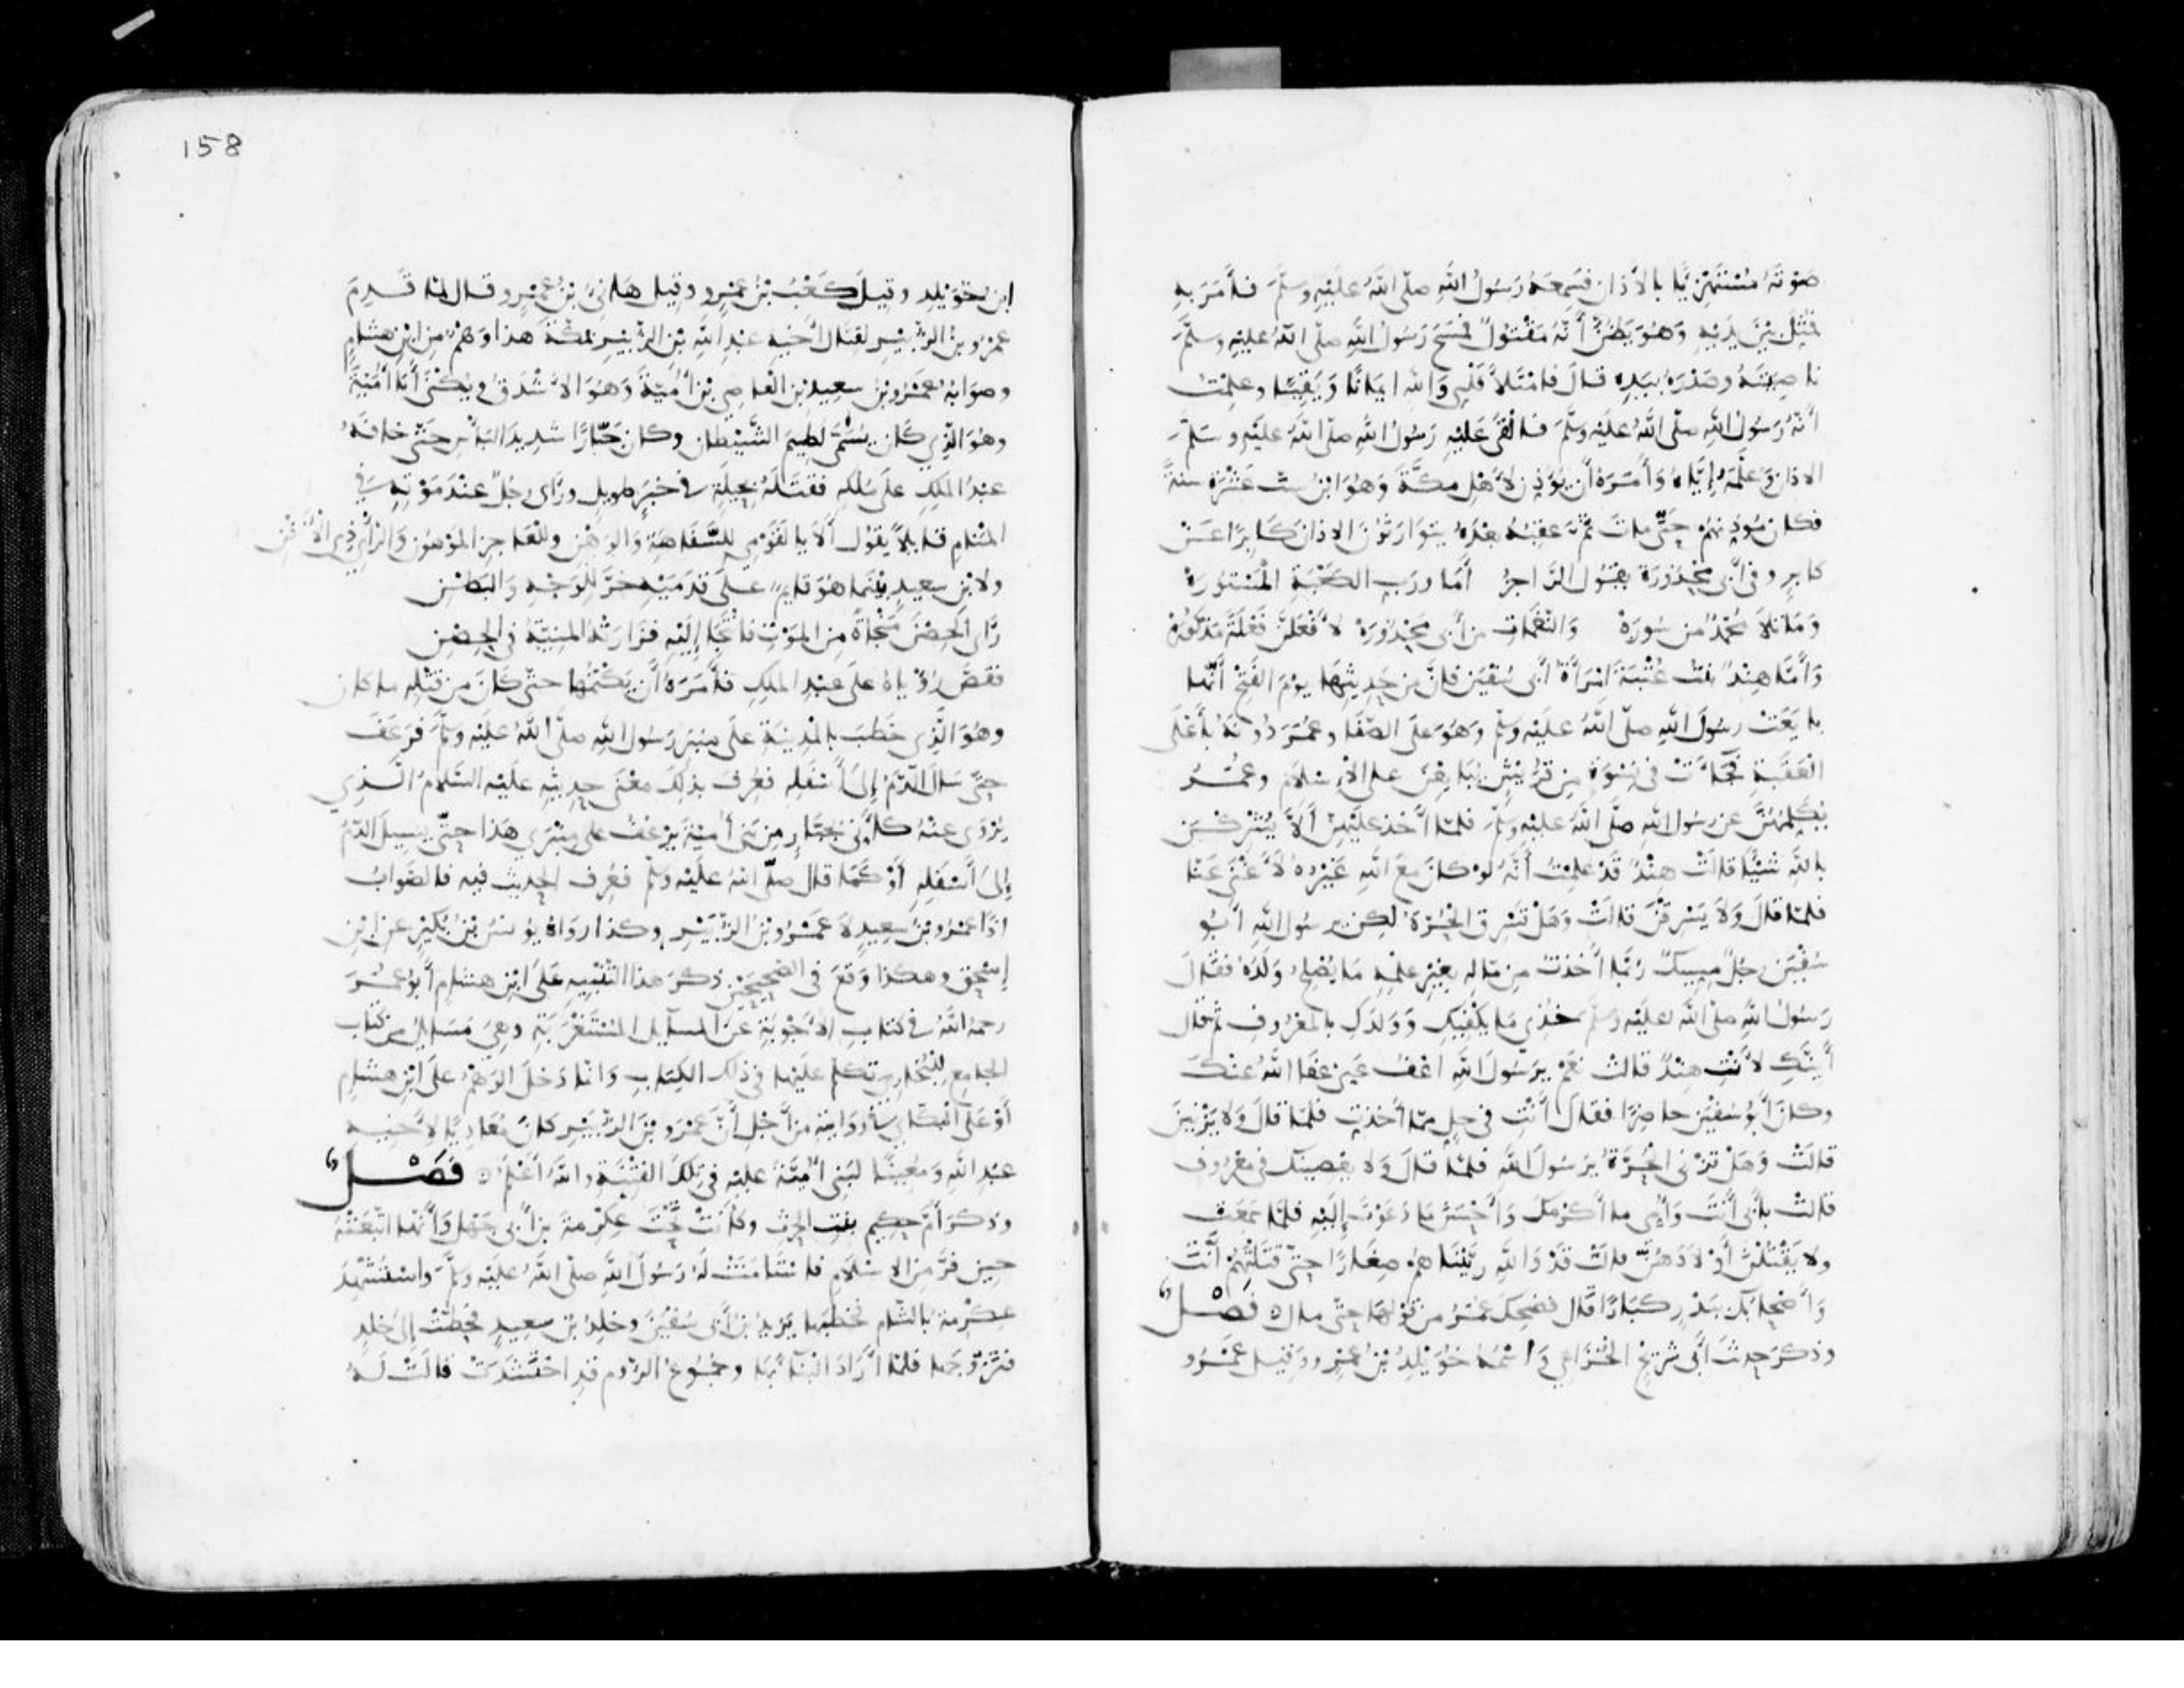 صَوْتَهُ مُسْتَهْزِئًا بالأَذان فسَمِعَهُ رَسُولُ اللهِ صلّى اللهُ عَلَيْهِ وسلَّمَ فأَمَرَ بِهِ
فمَثَلَ بَيْنَ يَدَيْهِ وَهُوَ يَظُنُّ أَنَّهُ مَقْتُولٌ فمَسَحَ رَسُولُ اللهِ صلّى اللهُ عليْهِ وسلّمَ
ناصِيَتَهُ وصَدْرَهُ بيَدِهِ قالَ فامْتَلأَ قَلْبِي وَاللهِ ايمَانًا وَيَقِينًا وعلِمْتُ
أَنّهُ رَسُولُ اللهِ صلّى اللهُ عليْهِ وسلّمَ فألْقَى عَليْهِ رَسُولُ اللهِ صلّى اللهُ عليْهِ وسلّمَ
الاذانَ وَعلَّمَهُ إيَّاهُ وَأَمَرَهُ أن يُؤَذِنَ لأَهْلِ مكَّةَ وَهُوَ ابْنُ ست عَشْرَةَ سنةً
فكان مُوَذِّنهُم حَتّى ماتَ ثُمَّ عَقِبُهُ بعْدَهُ يتوَارَثُونَ الاذانَ كَابِرًا عَنْ
كابِرٍ وفي أَبي مَحْذُورَةَ يقُولُ الرَّاجِزُ أَمَا ورَبِ الكَعْبَةِ الْمَسْتُورَهْ
وَمَا تلاَ مُحَمّدٌ من سُورَهْ وَالنّغَمَاتِ من أبي مَحْذورَهْ لأَفْعَلَنَّ فَعْلَةً مَذكُورَهْ
وَأَمّا هِنْدٌ بنت عُتْبَةَ امْرَأَةُ أَبي سُفْيَنَ فانَّ مِن حَدِيثِهَا يومَ الفَتْحِ أَنّها
بايَعَتْ رسُولَ اللهِ صلّى اللهُ عليْهِ وسلّم وَهُوَ عَلَى الصّفَا وعُمَرُ دُونَهُ بأَعْلَى
العَقَبَةِ فجَاءَتْ في نِسْوَةٍ مِن قُرَيْشٍ يُبَايِعْنَ على الإسْلاَمِ وعُمَرُ
يُكَلِّمُهُنَّ عن رسُولِ اللهِ صلّى اللهُ عليْهِ وسلّمَ فلمّا أَخذ عليْهِنَّ أَلاَّ يُشْرِكْنَ
باللهِ شيْئًا قالَتْ هِنْدٌ قَدْ علِمْتُ أَنَّهُ لوْ كانَ معَ اللهِ غَيْرُهُ لأَغْنَى عَنّا
فلمّا قالَ وَلاَ يَسْرِقْنَ قالَتْ وَهَلْ تَسْرِقُ الحُرَّةُ لكِن يرسُولَ اللهِ أَبُو
سُفْيَن رجُلٌ مِسِيكٌ رُبَّمَا أَخَذتُ مِن مّالِهِ بغَيْرِ علْمِهِ مَا يُصْلِحُ وَلَدَهُ فقَالَ
رَسُولُ اللهِ صلّى اللهُ عليْهِ وسلّمَ خُذِي مَا يَكْفِيكِ وَوَلدَكِ بالمَعْرُوفِ ثمّ قال
أَيِنّكِ لأَنْتِ هِنْدٌ قالَتْ نَعَمْ يرَسُولَ اللهِ اعْفُ عَنِي عَفَا اللهُ عنْكَ
وكانَ أَبُو سُفْيَنَ حاضِرًا فقالَ أَنْتِ في حِلٍّ مِمّا أَخَذتِ فلمّا قالَ وَلا يَزْنِينَ
قالَتْ وَهَلْ تَزْنِي الحُرَّةُ يرَسُولَ اللهِ فلمّا قالَ وَلا يعْصِينَكَ في مَعْرُوفٍ
قالتْ بأَبي أَنْتَ وَأُمِّي ما أَكْرَمَكَ وَأَحْسَنَ مَا دَعَوْتَ إِلَيْهِ فلمّا سَمِعَت
ولا يَقْتُلْنَ أَوْلاَدَهُنَّ قالَتْ قَدْ وَاللهِ ربَّيْنَاهُمْ صِغَارًا حتّى قتَلْتَهُمْ أَنْتَ
وَأَصْحَابُكَ بِبَدْرٍ كبَارًا قال فضحِكَ عُمَرُ من قوْلِهَا حتّى مال ه فَصْلٌ
وذكرَ حديثَ أَبي شُرَيْحٍ الخُزَاعِي وَاسْمُهُ خُوَيْلِدُ بْنُ عَمْرٍو وَقيلَ عَمْرُو
158
ابن خُوَيْلِدٍ وقِيلَ كَعْبُ بْنُ عَمْرٍو وقِيلَ هَانِئُ بْنُ عَمْرٍو وقال لمّا قَدِمَ
عمْرُو بْنُ الزُّبَيْرِ لِقتَالِ أَخِيهِ عبْدِ اللهِ بْنِ الزُّبَيْرِ بمَكّةَ هذا وَهْمٌ مِن ابْنِ هشَامٍ
وصوَابُهُ عَمْرُو بْنُ سعِيدِ بْنِ العاصِي بْنِ أُمَيّةَ وَهُوَ الأَشْدَقُ ويُكْنَى أَبَا أُمَيّةَ
وهُوَ الّذِي كَان يُسَمَّى لَطِيمَ الشَّيْطان وكان جَبّارًا شدِيدَ البَأْسِ حَتّى خافَهُ
عبْدُ المَلِكِ علَى مُلكِهِ فقتَلَهُ بحِيلَةٍ في خبَرٍ طويلٍ ورَأَى رجُلٌ عنْدَ مَوْتِهِ في
المَنَامِ قايلاً يَقُولُ أَلاَ يا لَقَوْمِي للسَّفَاهَةِ وَالوَهْنِ وللْعَاجِزِ المَوْهُونِ وَالرَّأْيِ ذِي الأَفْنِ
ولابْنِ سعِيدٍ بيْنَمَا هُوَ قايِمٌ علَى قدَمَيْهِ خرَّ لِلْوَجْهِ وَالبَطْنِ
رَّأَى الحِصْنَ مَنْجَاةً مِن المَوْتِ فالْتَجَا إِلَيْهِ فزَارَتْهُ المَنِيّةُ في الحِصْنِ
فقَصَّ رُؤْيَاهُ علَى عبْدِ المَلِكِ فأَمَرَهُ أَن يَكْتُمَها حتّى كَانَ مِن قتْلِهِ ما كان
وهُوَ الّذِي خَطَبَ بالمدِينَةِ علَى مِنْبَرِ رَسُولِ اللهِ صلّى اللهُ عليْهِ وسلّمَ فرَعَفَ
حتّى سَالَ الدَّمُ إِلَى أَسْفَلِهِ فعُرِفَ بذلِكَ معْنَى حدِيثِهِ علَيْهِ السّلاَمُ الّذِي
يُرْوَى عنْهُ كأَنّي بجَبّارٍ مِن بَنِي أُمَيّةَ يَرْعُفُ على مِنْبَرِي هَذا حتّى يسِيلَ الدّمُ
إِلَى أَسْفَلِهِ أَوْ كَمَا قال صلّى اللهُ علَيْهِ وسلّم فعُرِفَ الحديث فيه فالصّوابُ
اذًا عمْرُو بْنُ سعِيدٍ لاَ عَمْرُو بْنُ الزُّبَيْرِ وكذا رواهُ يُونسُ بْنُ بُكَيْرٍ عن ابْنِ
إِسْحق وهكذا وَقعَ في الصحِيحَيْن ذكرَ هذا التّنْبِيهَ عَلَى ابْنِ هشام أَبُو عُمَرَ
رحمَهُ اللهُ في كتَابِ الأَجْوِبَةِ عَن المسآيلِ المُسْتَغْرَبَةِ وهِيَ مَسَايِلُ من كتَابِ
الجامِعِ للْبُخَارِي تكلّم عليْهَا في ذلك الكِتَابِ وَانّما دَخلَ الوَهْمُ علَى ابْنِ هشَامٍ
أَوْ عَلَى البكّايِ في رِوَايَتِهِ من أَجْلِ أَنَّ عَمْرَو بْنَ الزُّبَيْرِ كانَ مُعَادِيًا لأَخِيهِ
عبْدِ اللهِ وَمُعِينًا لبَنِي أُمَيّةَ علَيْهِ في تِلْكَ الفِتْنَةِ واللهُ أَعْلَمُ ه فَصْلٌ
وذكرَ أُمَّ حكِيمٍ بنْتَ الحرِث وكانَتْ تَحْتَ عِكْرِمةَ بْنِ أَبي جَهْلٍ وَأَنّها اتّبَعَتْهُ
حِينَ فرَّ مِن الإسْلاَمِ فاسْتَأْمَنَتْ لهُ رَسُولَ اللهِ صلّى اللهُ عليْهِ وسلّمَ واسْتُشْهِدَ
عكْرِمةُ بالشّام فخطَبَها يَزِيدُ بْنُ أَبي سُفْيَنَ وخلِدُ بْنُ سعِيدٍ فخطبَتْ إِلَى خلِدٍ
فتَزَوَّجَها فلمّا أَرَادَ البِنَآءَ بِهَا وجُمُوعُ الرُّومِ قدِ احْتَشَدَتْ قالَتْ لَهُ